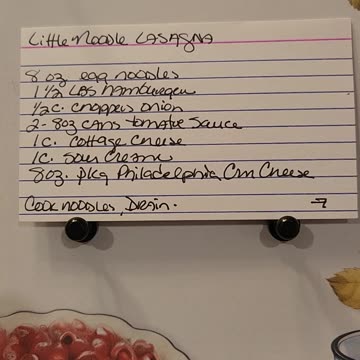 Little Noodle LASAGNA
8 oz egg noodles
1 1/2 Lbs hamburger
1/2 c. chopped onion
2- 8oz cans tomatoe sauce
1c. cottage cheese
1c. sour creame
8oz. pkg Philadelphia Crm Cheese
Cook noodles, DRAIN. →